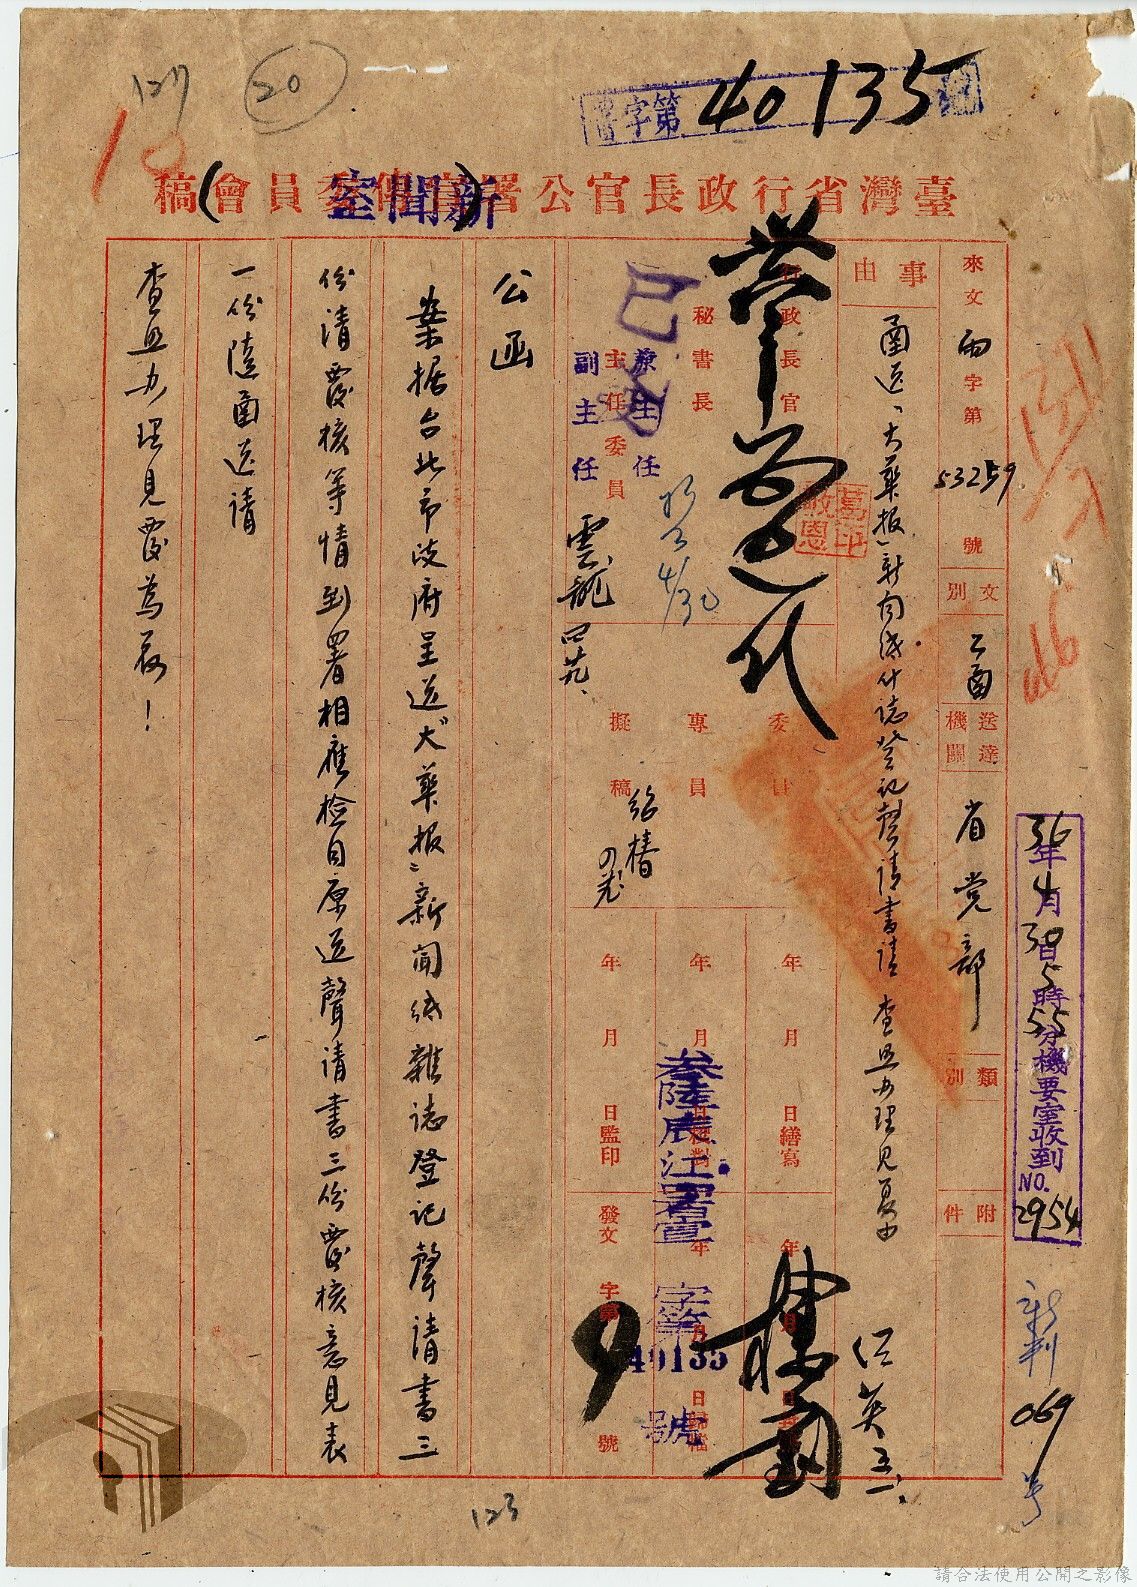 127
20
署字第 40135 號
臺灣省行政長官公署宣傳委員會(新聞室)稿
來文 字第 53259 號
文別 公函
送達機關 省党部
類別
附件
事由
函送「大華报」新闻纸什誌登记聲请書请
查照办理见复由
行政長官
葛敬恩
秘書長
主任委員
兼主任
副主任
雲龍
4/30
委員
專員
擬稿
紹椿
年 月 日繕寫
年 月 日校對
年 月 日監印
年 月 日
發文 字第 號
叁陸 署宣 字第 40135 號
公函
案据台北市政府呈送「大華报」新闻纸雜誌登记聲请書三
份请覆核等情到署相應檢同原送聲请書三份覆核意見表
一份隨函送请
查照办理見覆為荷！
36年4月30日5時55分機要室收到
NO. 2954
069
123
請合法使用公開之影像